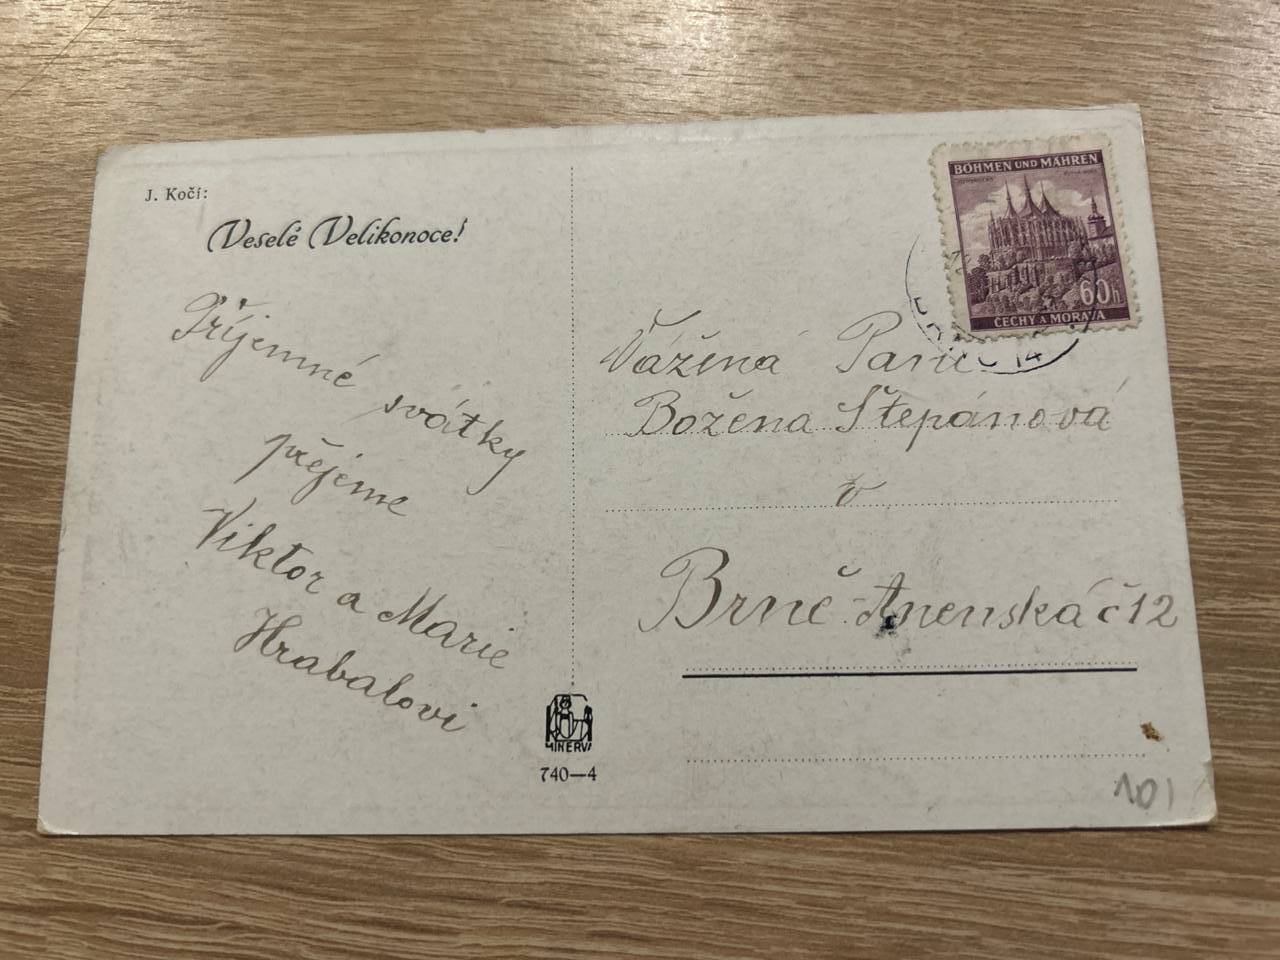 J. Kočí:
Veselé Velikonoce!
Příjemné
svátky
přejeme
Viktor a Marie
Hrabalovi
MINERVA
740—4
BÖHMEN UND MÄHREN
60h
ČECHY A MORAVA
14
Vážená Paní
Božena Štěpánová
v
Brně Anenská č 12
101